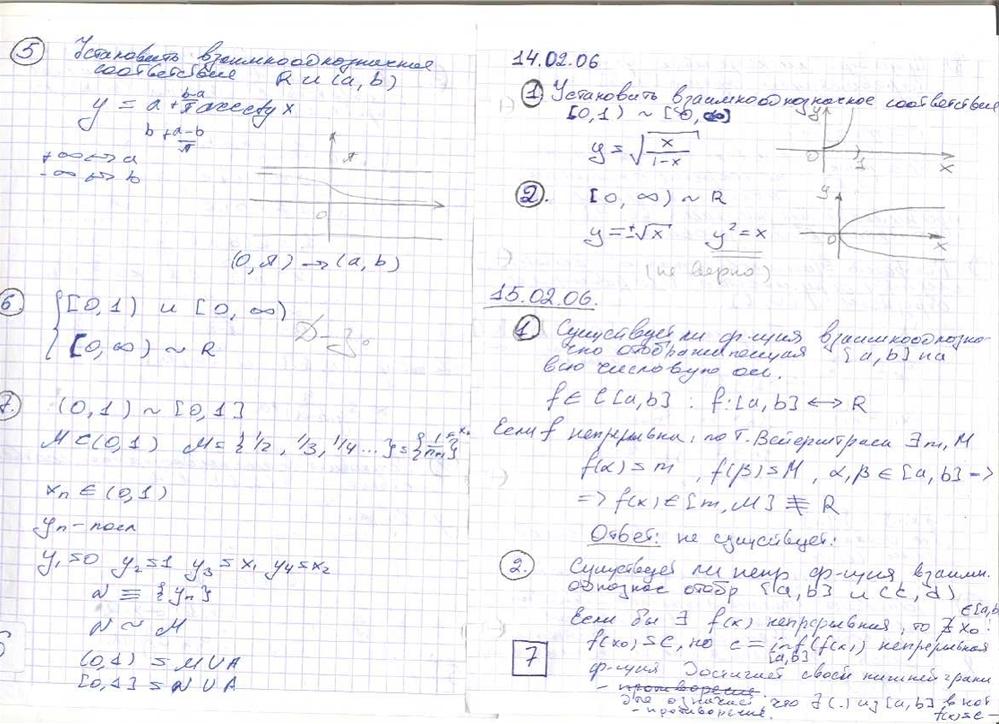 5 Установить взаимнооднозначное
соответствие R и (a, b)
y = a + b-a/π arcctg x
b + a-b/π
+∞ <-> a
-∞ <-> b
π
0
(0, π) -> (a, b)
6 { [0, 1) и [0, ∞)
[0, ∞) ~ R
Д-З.
7. (0, 1) ~ [0, 1]
M ⊂ (0, 1) M = {1/2, 1/3, 1/4 ...} = {1/n+1}
xn ∈ (0, 1)
yn - посл
y1 = 0 y2 = 1 y3 = x1 y4 = x2
N ≡ {yn}
N ~ M
(0, 1) = M ∪ A
[0, 1] = N ∪ A
14.02.06
1 Установить взаимнооднозначное соответствие
[0, 1) ~ [0, ∞]
y = √(x/(1-x))
y
0 1 x
2. [0, ∞) ~ R
y = ±√x y² = x
y
0 x
(не верно)
15.02.06.
1 Существует ли ф-ция взаимнооднозна-
чно отображающая [a, b] на
всю числовую ось.
f ∈ C[a, b] : f: [a, b] <-> R
Если f непрерывна, по т. Вейерштраса ∃ m, M
f(α) = m, f(β) = M, α, β ∈ [a, b] ->
=> f(x) ∈ [m, M] ≢ R
Ответ: не существует.
2. Существует ли непр ф-ция взаимн.
однозное отобр [a, b] и (c, d)
Если бы ∃ f(x) непрерывная, то ∄ x0 ∈ [a, b]
f(x0) = c, но c = inf (f(x)) непрерывная
[a, b]
ф-ция достигает своей нижней грани
- противоречие.
Это означает что ∃ (.) из [a, b] в кот
- противоречие. f(x) = c -
7